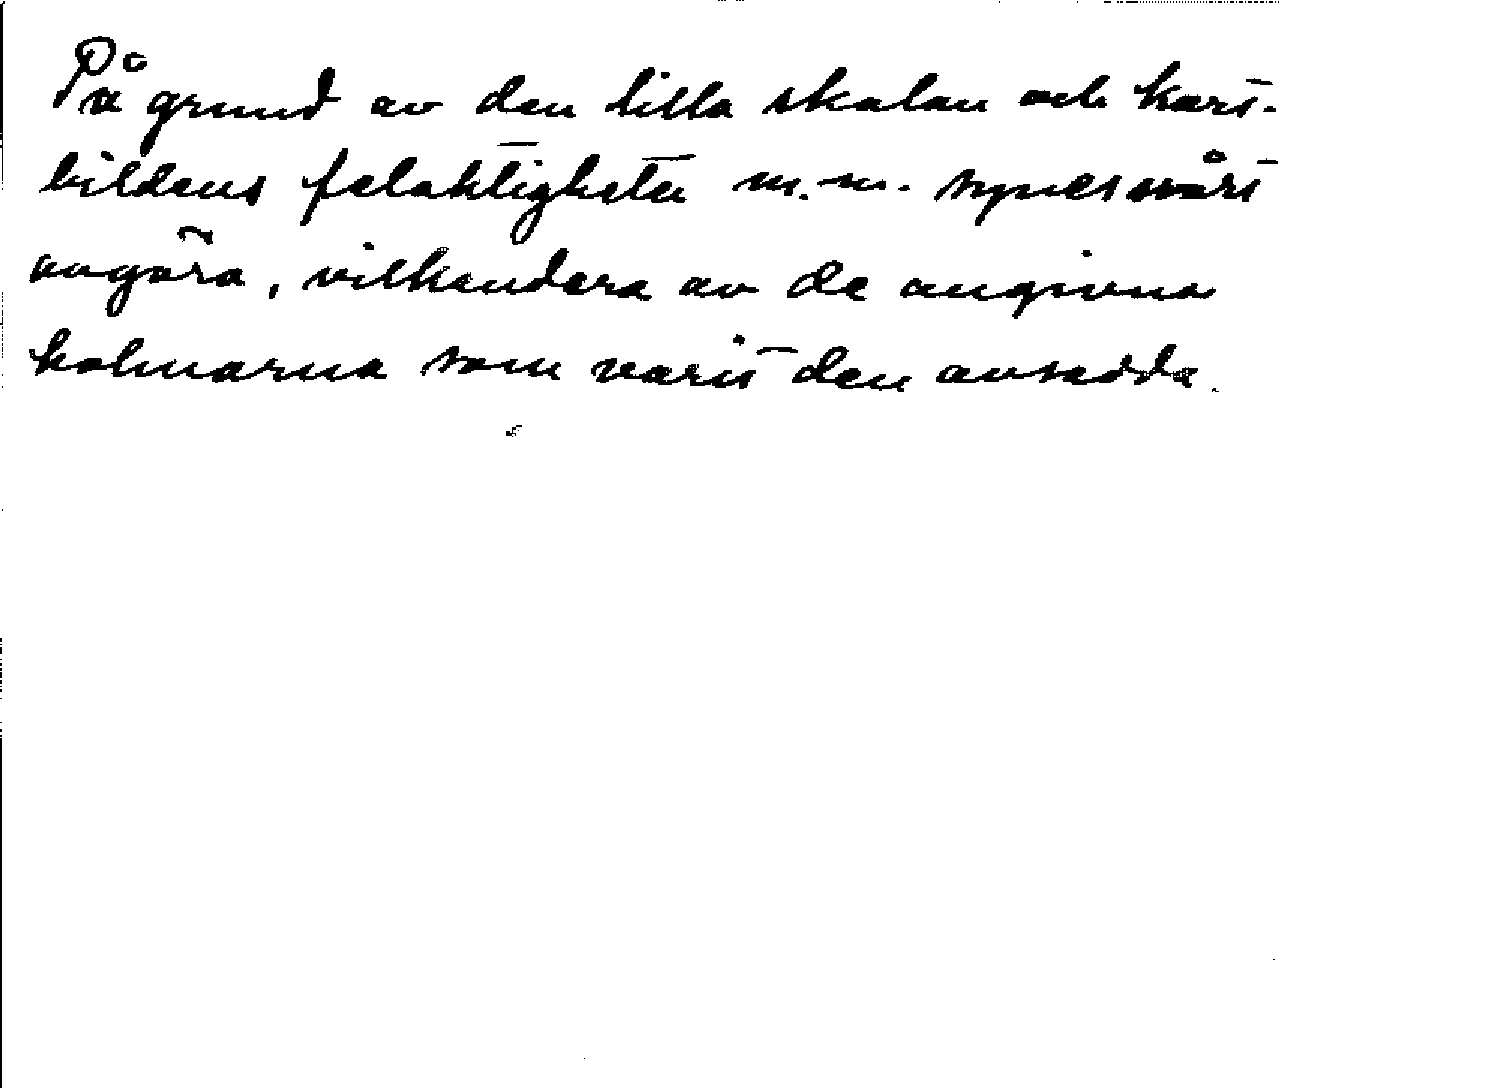 På grund av den lilla skalan och kart-
bildens felaktigheter m.m. synes svårt
avgöra, vilkendera av de angivna
holmarna som varit den avsedda.